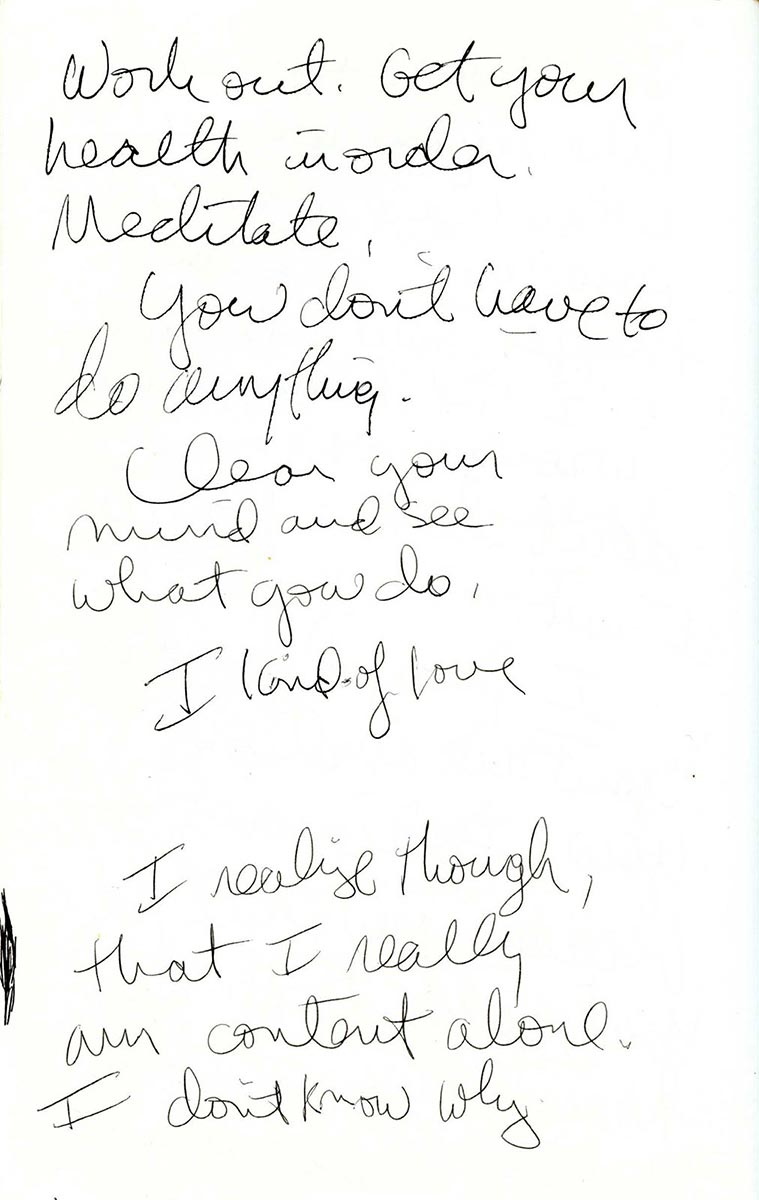 Work out. Get your
health in order.
Meditate.
You don't have to
do anything.
Clear your
mind and see
what you do.
I kind of love
I realize though,
that I really
am content alone.
I don't know why